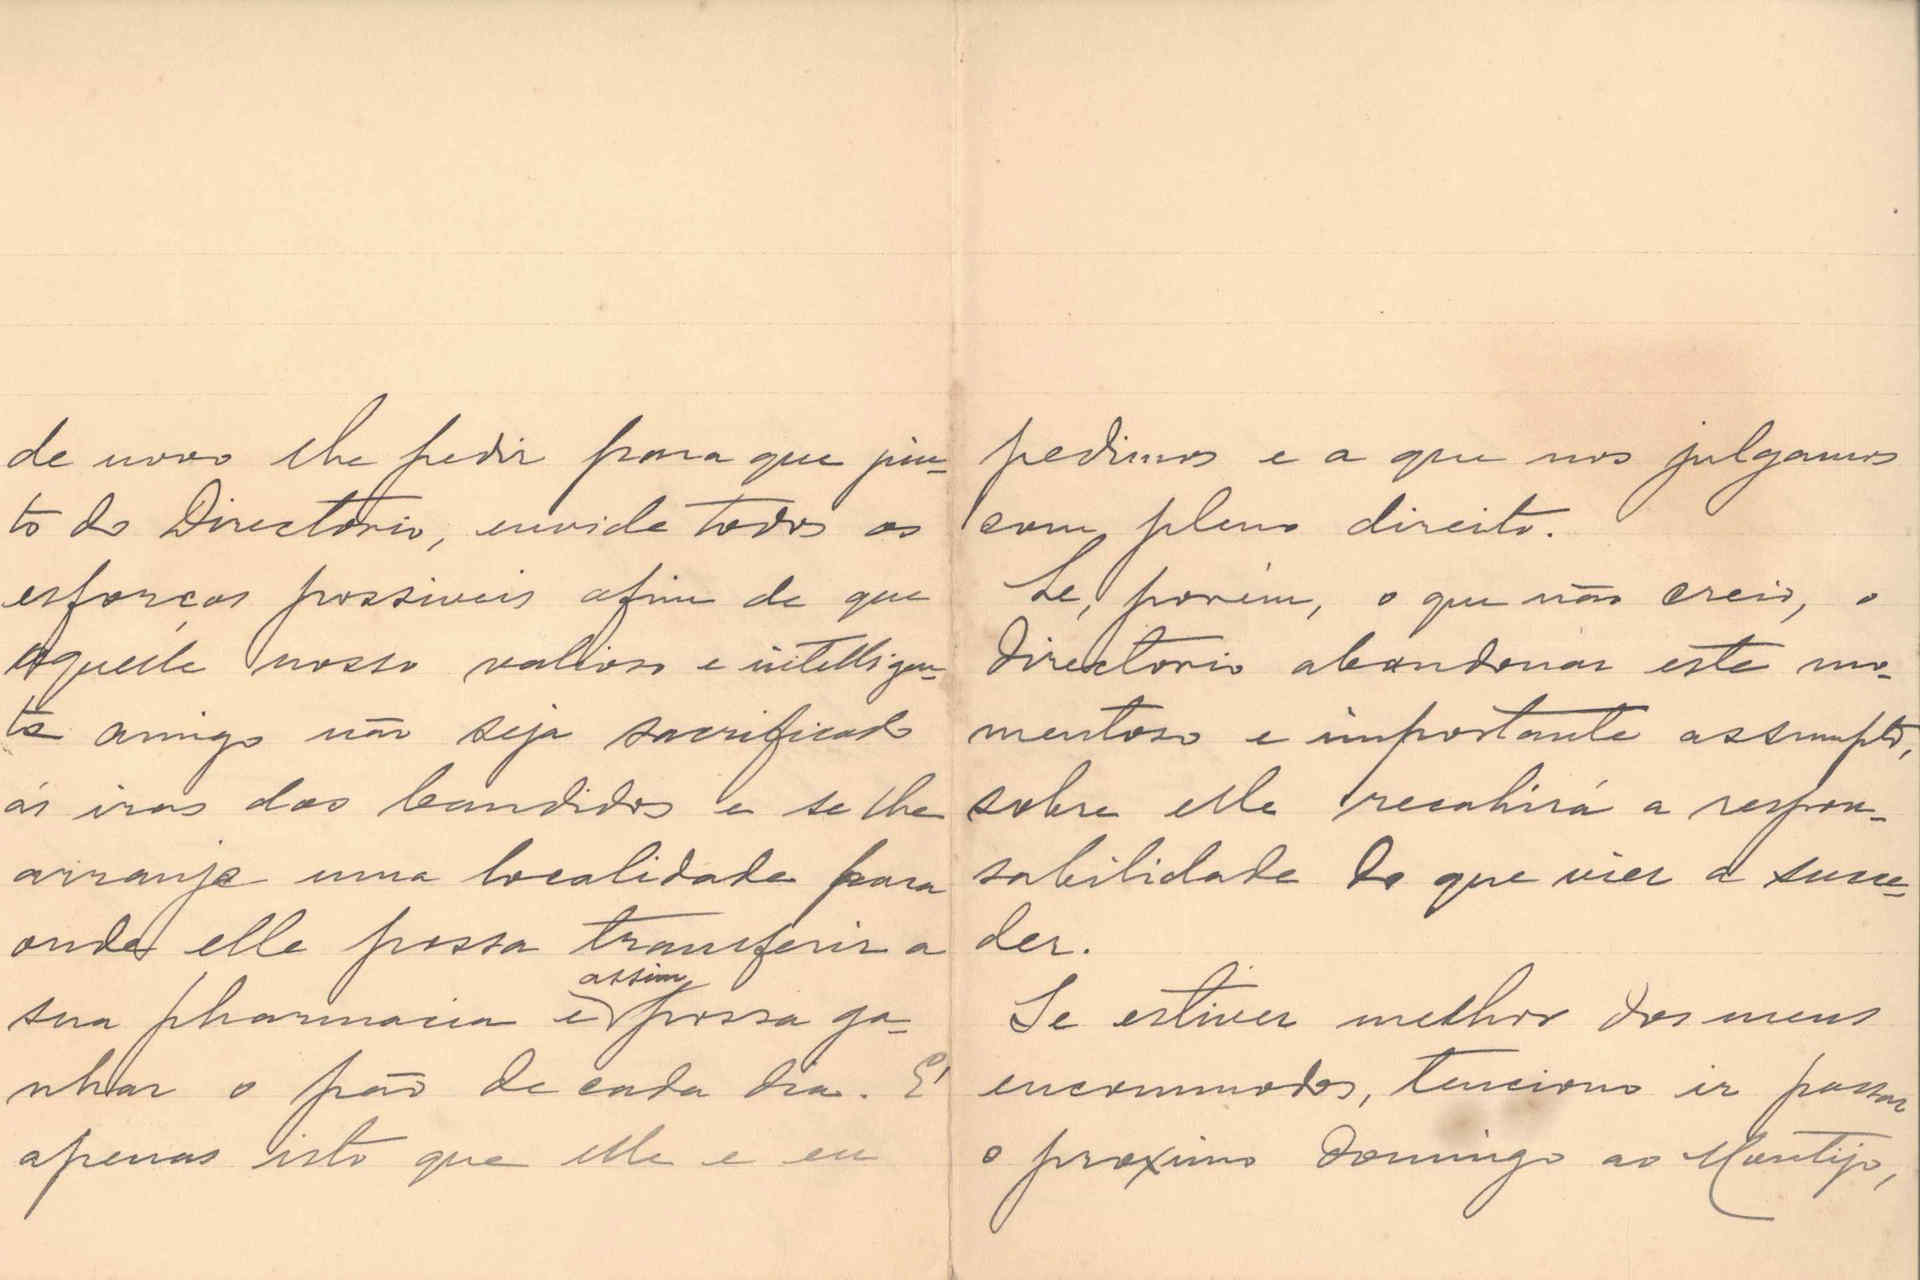 de novo lhe pedir para que jun-
to do Directorio, envide todos os
esforços possiveis afim de que
aquelle nosso valioso e intelligen-
te amigo não seja sacrificado
ás iras dos bandidos e se lhe
arranje uma localidade para
onde elle possa transferir a
sua pharmacia e assim possa ga-
nhar o pão de cada dia. E'
apenas isto que elle e eu
pedimos e a que nos julgamos
com pleno direito.
Se, porém, o que não creio, o
Directorio abandonar este mo-
mentoso e importante assumpto,
sobre elle recahirá a respon-
sabilidade do que vier a succe-
der.
Se estiver melhor dos meus
encommodos, tenciono ir passar
o proximo Domingo ao Montijo,